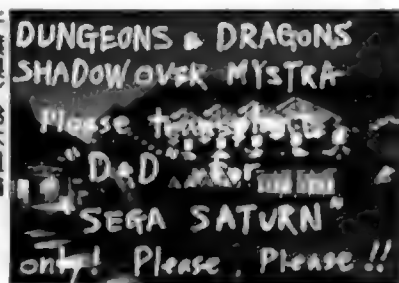 DUNGEONS & DRAGONS
SHADOW OVER MYSTRA
Please
"D&D" for
"SEGA SATURN"
only! Please, Please!!